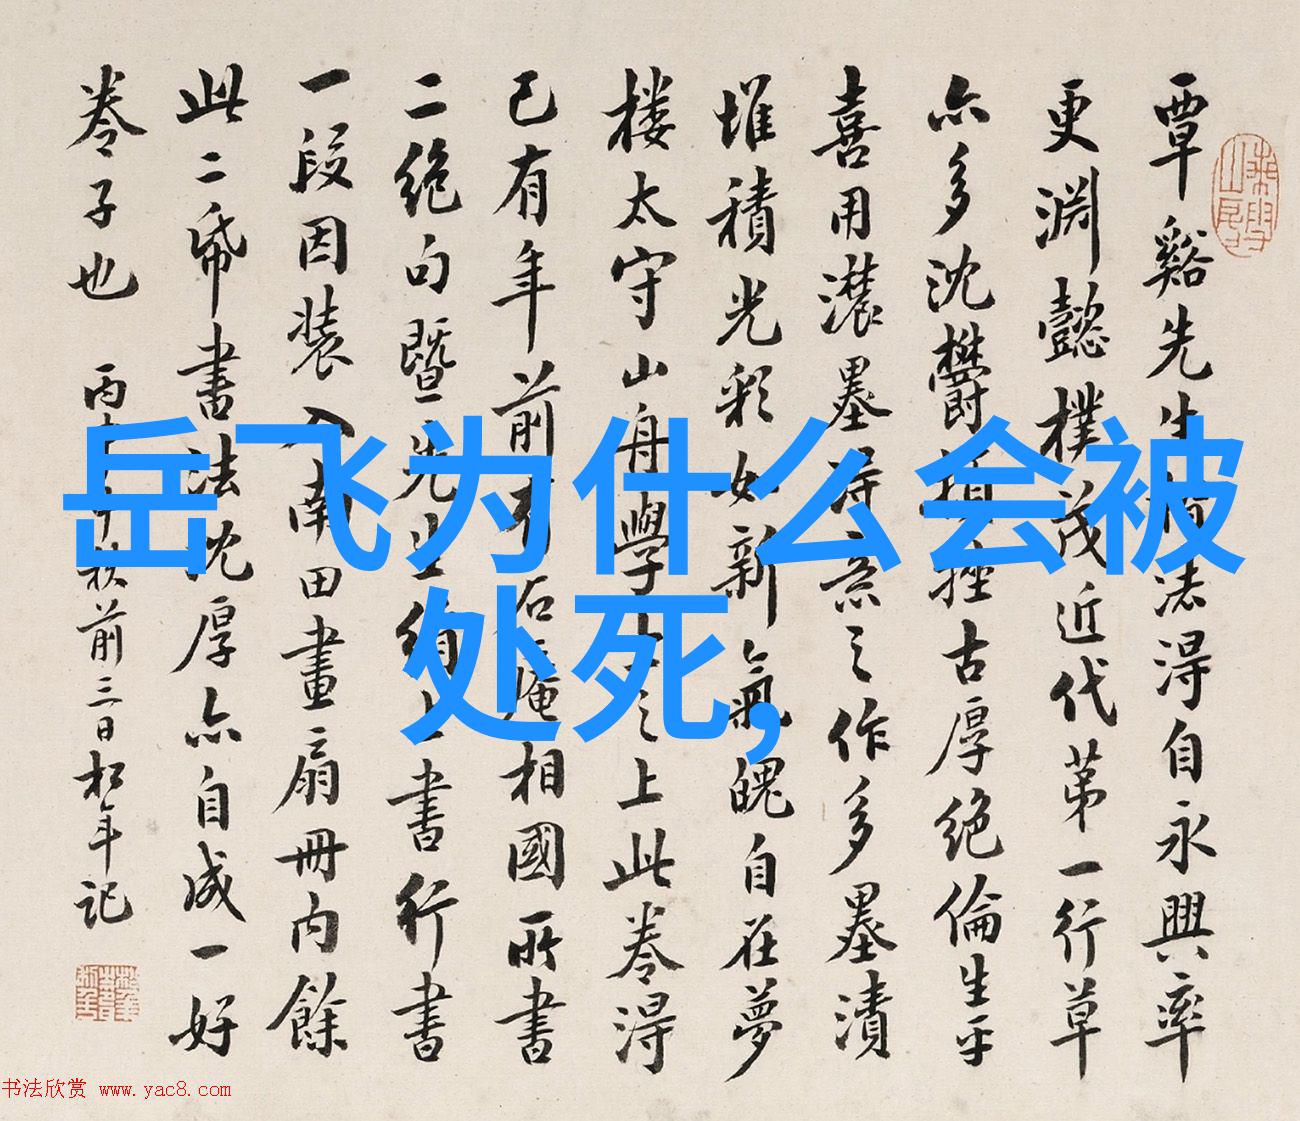 覃谿先生楷法得自永興率
更渊懿樸茂近代苐一行草
亦多沈欝頓挫古厚絶倫生平
喜用濃墨得意之作多墨漬
堆積光彩如新氣魄自在夢
楼太守山舟學士之上此卷得
已有年前有石庵相國所書
二絶句暨先生絢上書行書
一段因装入南田畫扇冊内餘
此二帋書法沈厚亦自成一好
卷子也 丙
秋前三日松年記
岳飞为什么会被
处死,
书法欣赏 www.yac8.com